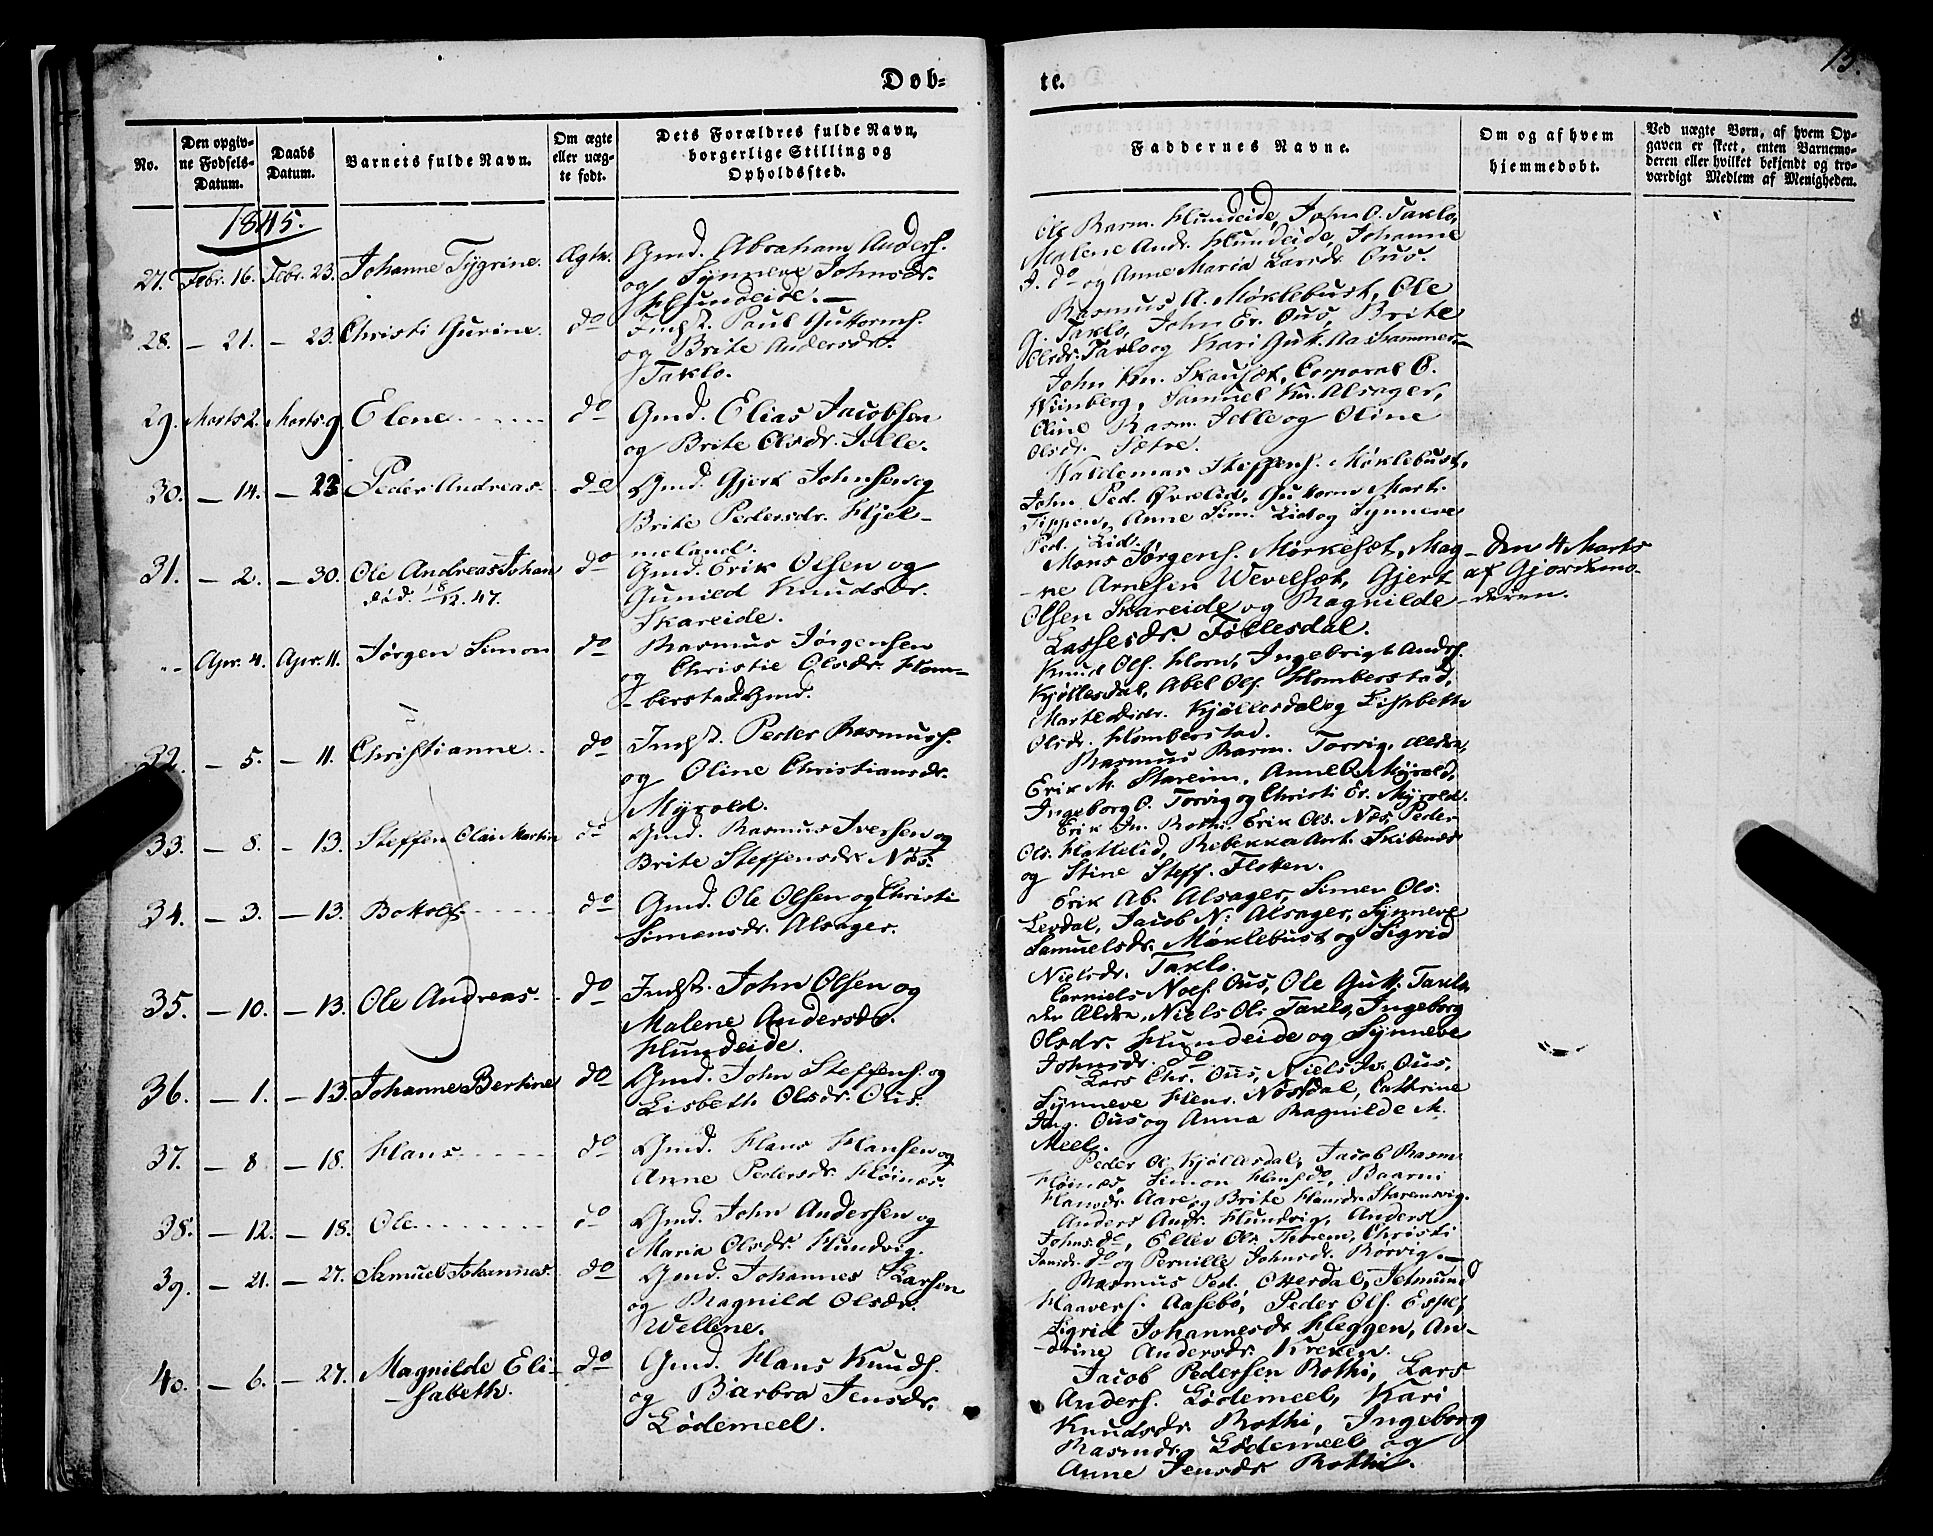 Døb-
te.
13.
No.
Den opgiv-
ne Fødsels-
Datum.
Daabs
Datum.
Barnets fulde Navn.
Om ægte
eller uæg-
te født.
Dets Forældres fulde Navn,
borgerlige Stilling og
Opholdssted.
Faddernes Navne.
Om og af hvem
hjemmedøbt.
Ved uægte Børn, af hvem Op-
gaven er skeet, enten Barnemo-
deren eller hvilket bekjendt og tro-
værdigt Medlem af Menigheden.
1845.
27. Febr. 16. Febr. 23. Johanne Tygrine. Ægte. Gmd. Abraham Anders.
og Synneve Johnsdr.
Hundeide. —
Ole Rasm. Hundeide, John O. Taklo,
Malene Andr. Hundeide, Johanne
J. do og Anne Maria Larsdr. Ous.
28. — 21. — 23. Christi Gurine. do Indst. Paul Guttorms.
og Brite Andersdr.
Taklo.
Rasmus A. Møklebust, Ole
G. Taklo, John Er. Ous, Brite
Olsdr. Taklo og Kari Gut. Aa Hammer-
29. Marts 2. Marts 9. Elene do Gmd. Elias Jacobsen
og Brite Olsdr. Jelle.
John Kn. Skausæt, Corporal O.
Wiinberg, Samuel Kn. Alsager,
Oline Rasm. Jelle og Oline
Olsdr. Sætre.
30. — 14. — 23 Peder Andreas. do Gmd. Gjert Johnsen og
Brite Pedersdr. Hjel-
meland.
Waldemar Steffens. Møklebust,
John Ped. Øvrelid, Guttorm Mart.
Tippen, Anne Sim. Lid og Synneve
Ped. Lid.
31. — 2. — 30. Ole Andreas Johan do Gmd. Erik Olsen og
død. 18/12. 47. Gunild Knudsdr.
Skareide.
Mons Jørgens. Mørkesæt, Mag-
-ne Arnesen Wevelsæt, Gjert
Olsen Skareide og Ragnilde
Lassesdr. Føllesdal.
- Den 4 Marts
af Gjordemo-
deren.
-- Apr. 4. Apr. 11. Jørgen Simon do Rasmus Jørgensen
og Christie Olsdr. Hom-
-berstad Gmd.
Knud Ols. Horn, Ingebrigt Anders.
Kjøllesdal, Abel Ols. Homberstad,
Marte Didr. Kjøllesdal og Lisabeth
Olsdr. Homberstad.
32. — 5. — 11. Christianne do Indst. Peder Rasmuss.
og Oline Christiansdr.
Myrold.
Rasmus Rasm. Torvig, Ældre,
Erik M. Stareim, Anne R. Myrold,
Ingeborg O. Torvig og Christi Er. Myrold.
33. — 8. — 13. Steffen Olai Martin do Gmd. Rasmus Iversen og
Brite Steffensdr. Nös.
Erik In. Rothi, Erik Ols. Nös, Peder
Ols. Hattelid, Rebekka Ant. Skibenæs
og Stine Steff. Floten.
34. — 3. — 13. Bottolf do Gmd. Ole Olsen og Christi
Simensdr. Alsager.
Erik Ab. Alsager, Simen Ols.
Lerdal, Jacob N. Alsager, Synneve
Samuelsdr. Møklebust og Sigrid
Nielsdr. Taklo.
35. — 10. — 13. Ole Andreas. do Indst. John Olsen og
Malene Andersdr.
Hundeide.
Corniels Nels. Ous, Ole Gutt. Taklo
den Ældre, Niels Ols. Taklo, Ingeborg
Olsdr. Hundeide og Synneve
Johnsdr. do
36. — 1. — 13. Johanne Bertine do Gmd. John Steffens. og
Lisbeth Olsdr. Ous.
Lars Chr. Ous, Niels Js. Ous,
Synneve Hens. Nosdal, Cathrine
Ing. Ous og Anna Ragnilde M.
Meel.
37. — 8 — 18. Hans do Gmd. Hans Hansen og
Anne Pedersdr. Høinæs.
Peder Ol. Kjøllesdal, Jacob Rasm.
Høinæs, Simon Hans. do, Baarni
Hansdr. Aare og Brite Hansdr. Starensvig.
38. — 12. — 18. Ole do Gmd. John Andersen og
Maria Olsdr. Hundvig.
Anders Andr. Hundvig, Anders
Johns. do, Ellev Ols. Therem, Christi
Jansdr. do og Pernille Johnsdr. Rørvig. —
39. — 21. — 27. Samuel Johannes. do Gmd. Johannes Larsen
og Ragnild Olsdr.
Wellene.
Rasmus Ped. Otterdal, Jetmund
Haavers. Aasebø, Peder Ols. Espe,
Sigrid Johannesdr. Heggen, An-
-drine Andersdr. Kreken.
40. — 6. — 27. Magnilde Eli- do Gmd. Hans Knuds.
-sabeth. og Barbra Jensdr.
Lødemeel.
Jacob Pedersen Rothi, Lars
Anders. Lødemeel, Kari
Knudsdr. Rothi, Ingeborg
Rasmdr. Lødemeel og
Anne Jensdr. Rothi.